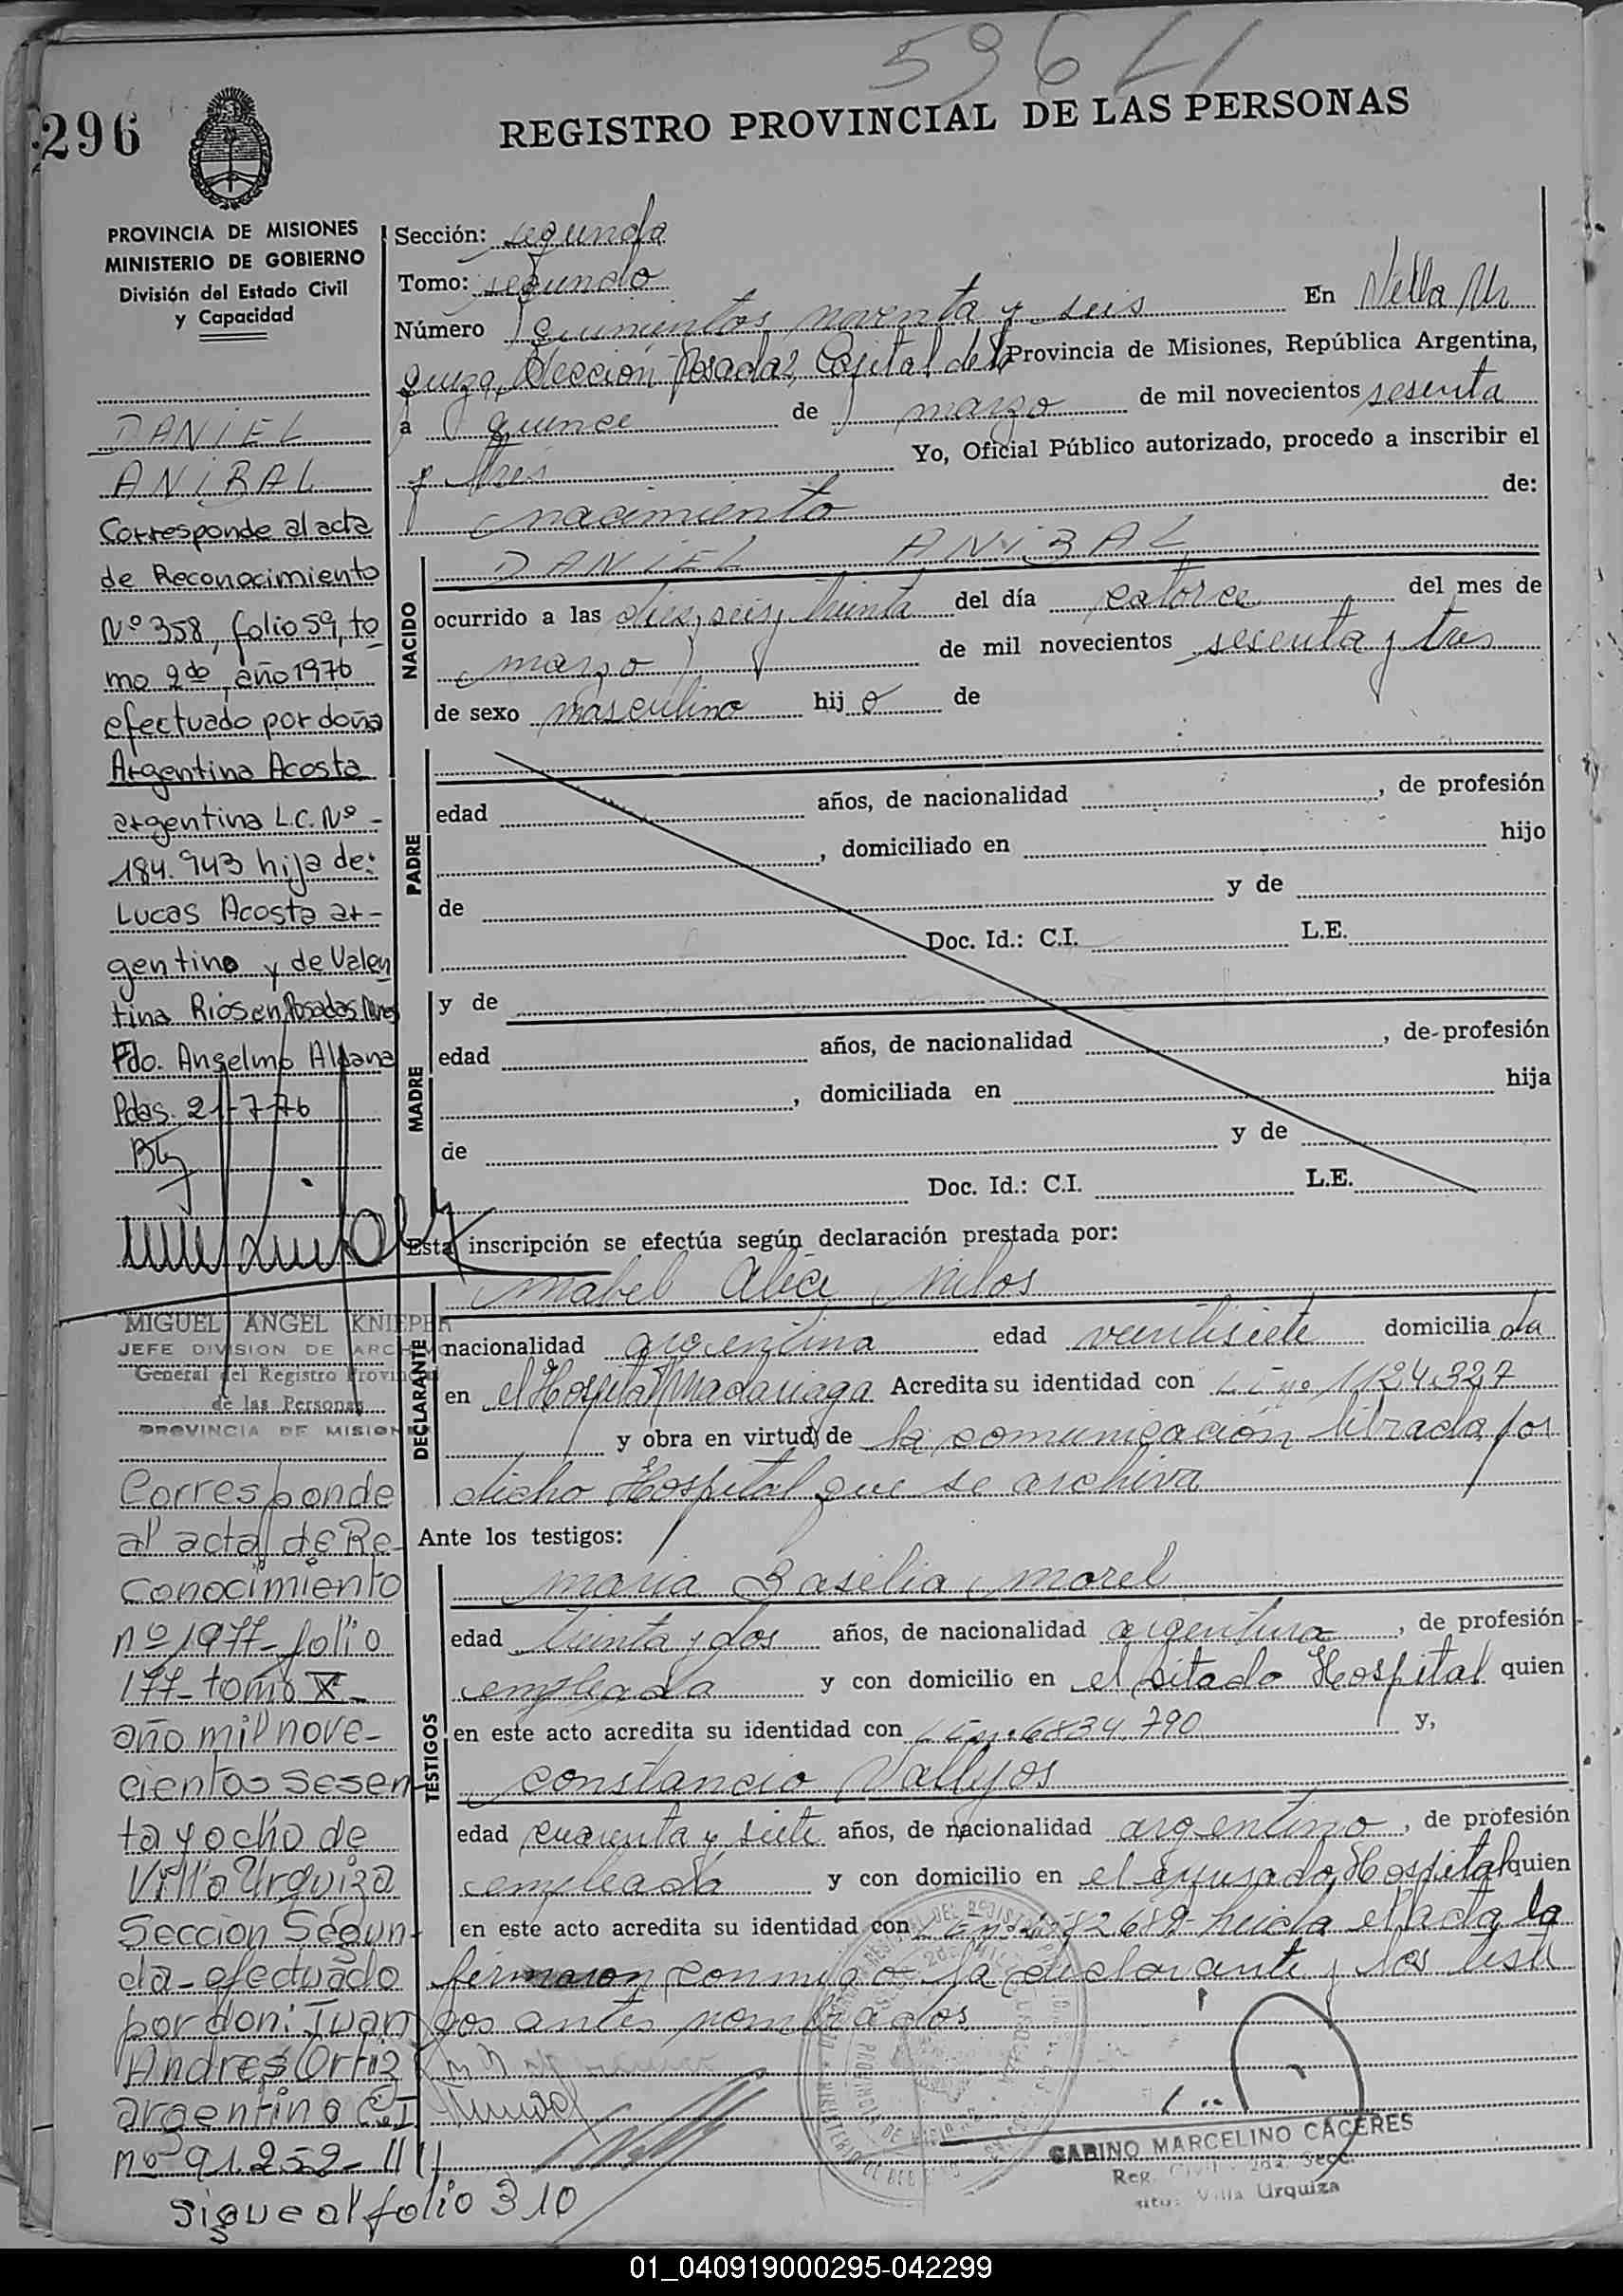 596
296
REGISTRO PROVINCIAL DE LAS PERSONAS
PROVINCIA DE MISIONES
MINISTERIO DE GOBIERNO
División del Estado Civil
y Capacidad
DANIEL
ANIBAL
Corresponde al acta
de Reconocimiento
Nº 358, folio 59, to
mo 2do, año 1976
efectuado por doña
Argentina Acosta
argentina L.C. Nº -
184.943 hija de:
Lucas Acosta ar-
gentino y de Valen
tina Ríos en Posadas Mnes
Fdo. Anselmo Aldana
Pdas. 21-7-76
MIGUEL ANGEL KNIEPER
JEFE DIVISION DE ARCHIVO
General del Registro Provincial
de las Personas
PROVINCIA DE MISIONES
Corresponde
al acta de Re-
conocimiento
nº 1977- folio
177- tomo X-
año mil nove-
cientos sesen-
ta y ocho de
Villa Urquiza
Sección Segun-
da- efectuado
por don: Juan
Andrés Ortiz
argentino C.I
nº 91.252-
sigue al folio 310
Sección: segunda
Tomo: segundo
Número quinientos noventa y seis En Villa Ur
quiza, Sección Posadas, Capital de la Provincia de Misiones, República Argentina,
a quince de marzo de mil novecientos sesenta
y tres Yo, Oficial Público autorizado, procedo a inscribir el
nacimiento de:
DANIEL ANIBAL
NACIDO
ocurrido a las diez, seis y treinta del día catorce del mes de
marzo de mil novecientos sesenta y tres
de sexo masculino hij o de
PADRE
edad años, de nacionalidad , de profesión
, domiciliado en hijo
de y de
Doc. Id.: C.I. L.E.
MADRE
y de
edad años, de nacionalidad , de profesión
, domiciliada en hija
de y de
Doc. Id.: C.I. L.E.
Esta inscripción se efectúa según declaración prestada por:
DECLARANTE
Mabel Alice Milos
nacionalidad argentina edad veintisiete domicilia da
en el Hospital Madariaga Acredita su identidad con 1124.327
y obra en virtud de la comunicación librada por
dicho Hospital que se archiva
Ante los testigos:
TESTIGOS
Maria Basilia Morel
edad treinta y dos años, de nacionalidad argentina, de profesión
empleada y con domicilio en el sitado Hospital quien
en este acto acredita su identidad con 6834.790 y,
Constancio Vallejos
edad cuarenta y siete años, de nacionalidad argentino, de profesión
empleado y con domicilio en el expresado Hospital quien
en este acto acredita su identidad con leída el acta la
firmaron conmigo la declarante y los testi
gos antes nombrados
GABINO MARCELINO CACERES
Reg. Civil 2da. Secc.
sito: Villa Urquiza
01_040919000295-042299